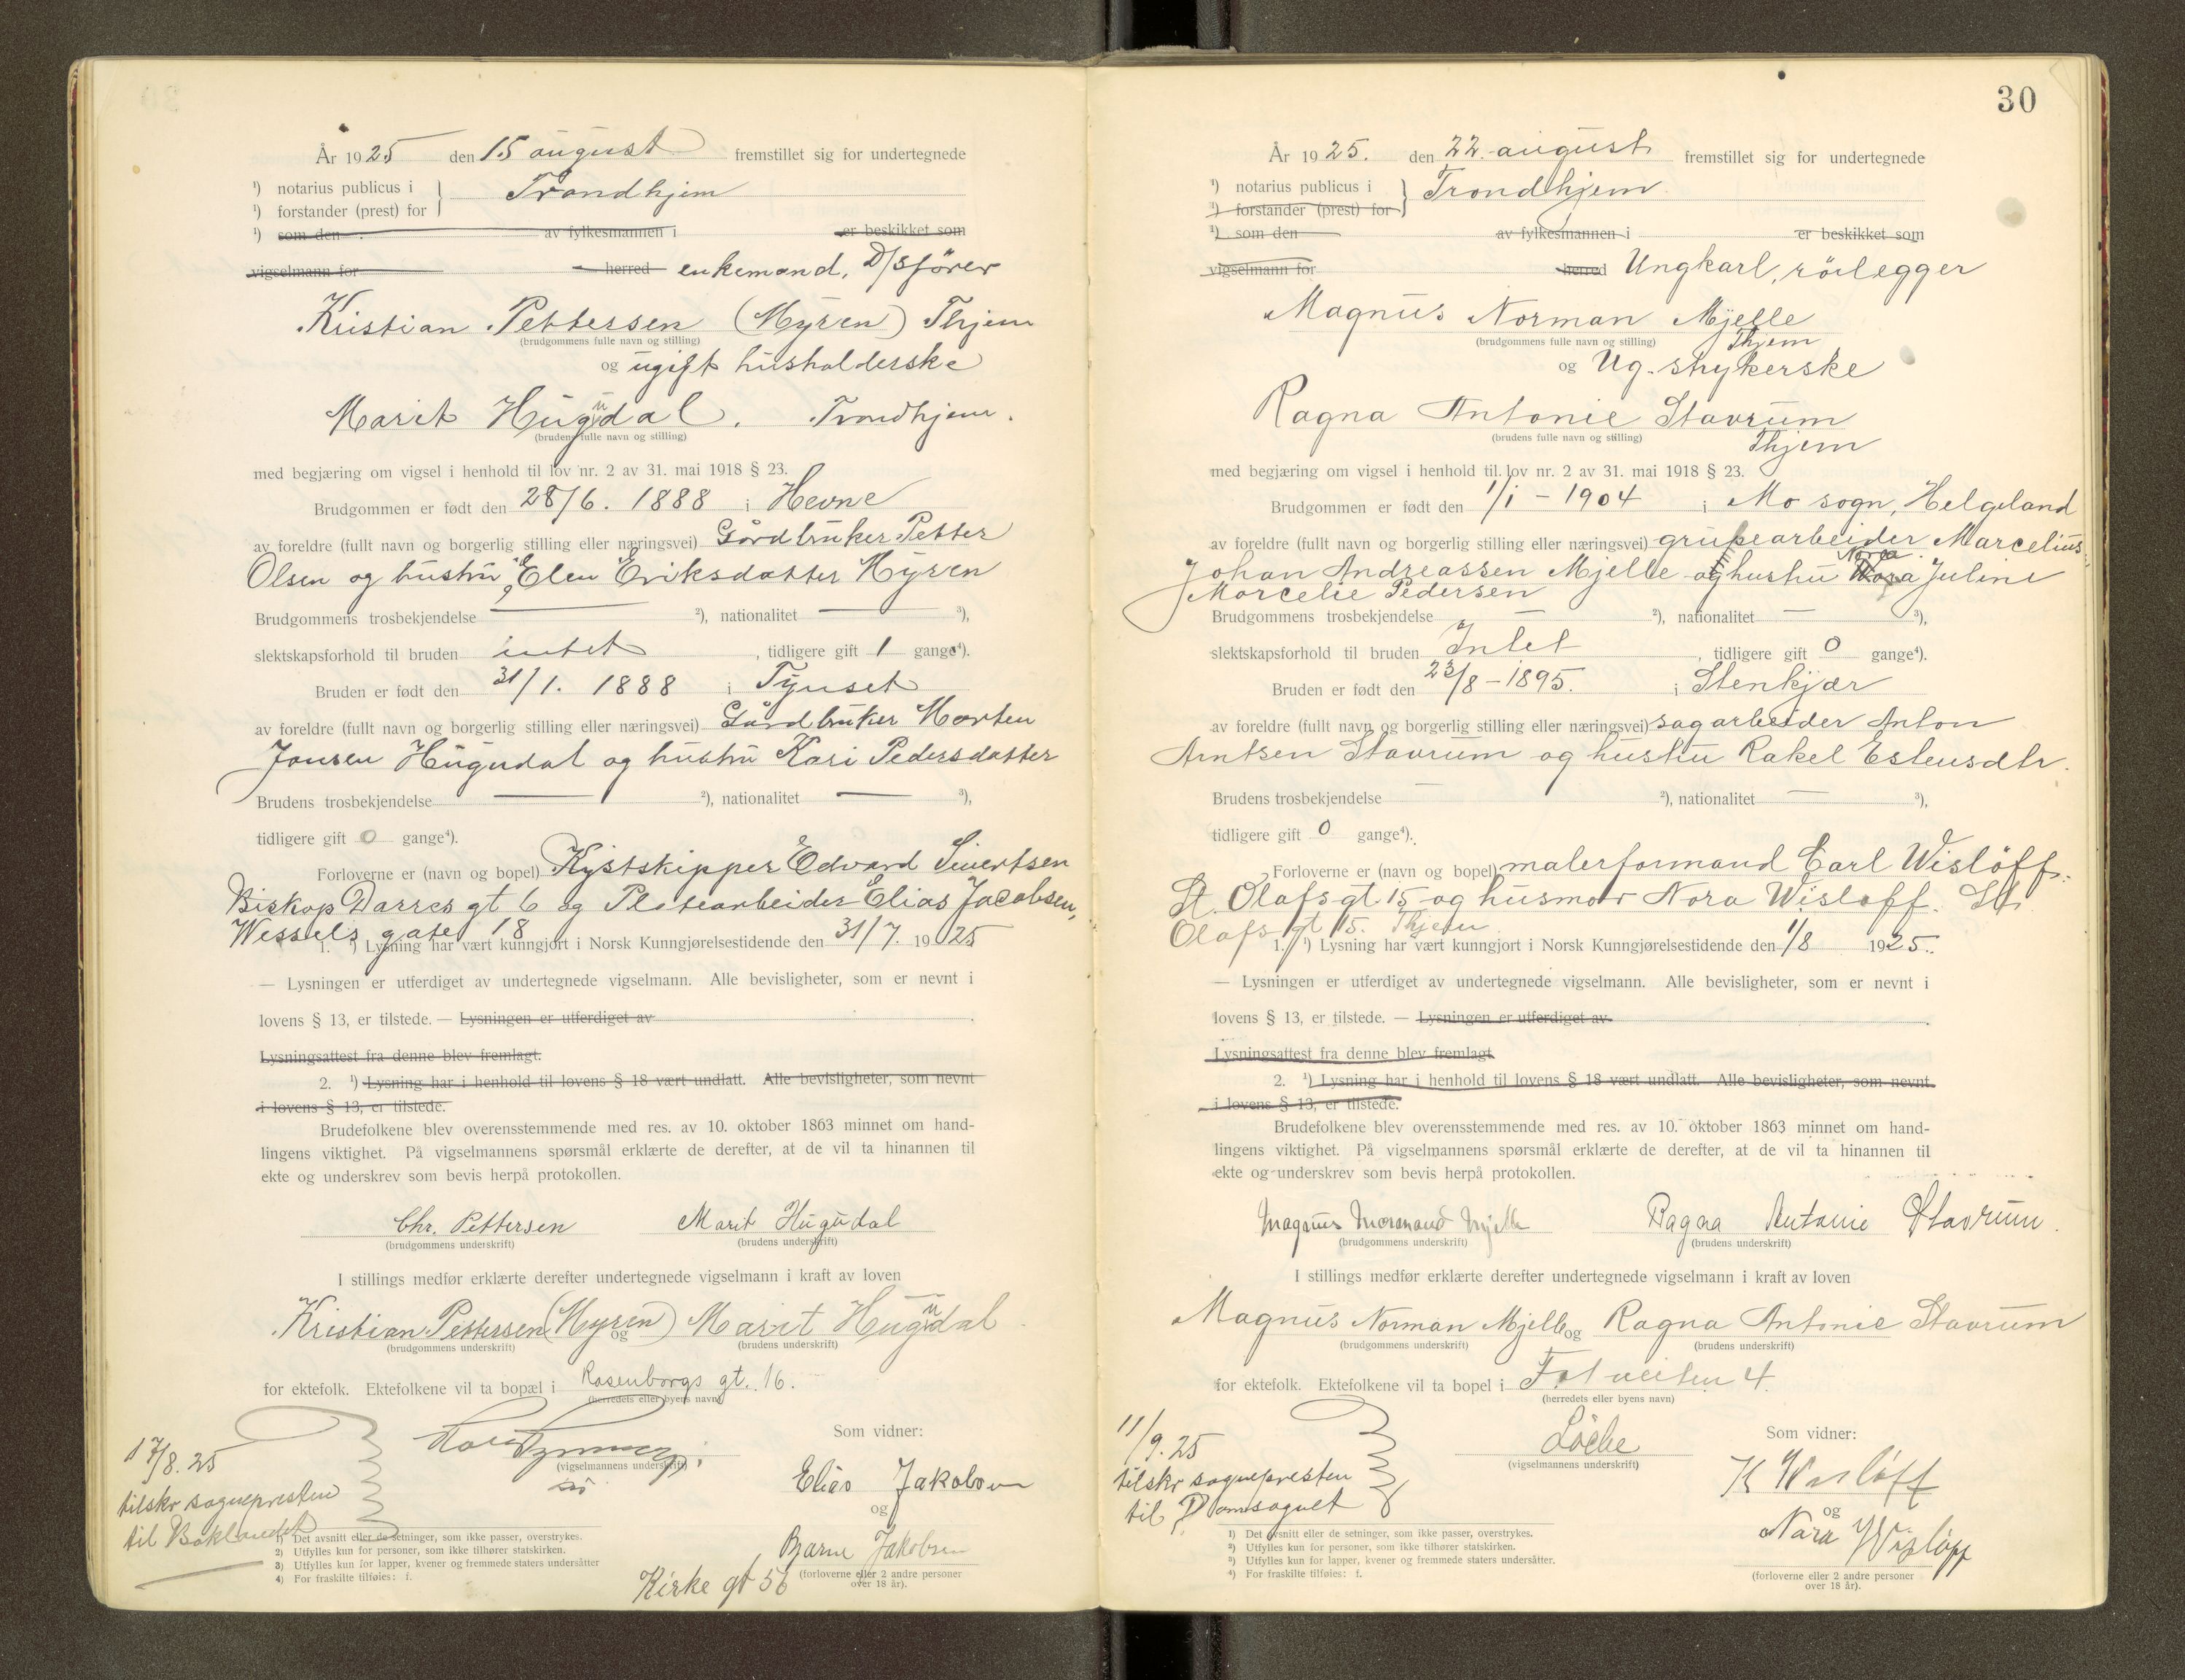 År 1925 den 15 august fremstillet sig for undertegnede
¹) notarius publicus i } Trondhjem
¹) forstander (prest) for
¹) som den av fylkesmannen i er beskikket som
vigselmann for herred enkemand, D/S fører
Kristian Pettersen (Myren) Thjem
(brudgommens fulle navn og stilling)
og ugift husholderske
Marit Hugudal. Trondhjem.
(brudens fulle navn og stilling)
med begjæring om vigsel i henhold til lov nr. 2 av 31. mai 1918 § 23.
Brudgommen er født den 28/6. 1888 i Hevne
av foreldre (fullt navn og borgerlig stilling eller næringsvei) Gårdbruker Petter
Olsen og hustru Elen Eriksdatter Myren
Brudgommens trosbekjendelse — ²), nationalitet — ³),
slektskapsforhold til bruden intet, tidligere gift 1 gange⁴).
Bruden er født den 31/1. 1888 i Tynset
av foreldre (fullt navn og borgerlig stilling eller næringsvei) Gårdbruker Morten
Jonsen Hugudal og hustru Kari Pedersdatter
Brudens trosbekjendelse — ²), nationalitet — ³),
tidligere gift 0 gange⁴).
Forloverne er (navn og bopel) Kystskipper Edvard Sivertsen
Biskop Darres gt 6 og Platearbeider Elias Jacobsen,
Wessels gate 18
1. ¹) Lysning har vært kunngjort i Norsk Kunngjørelsestidende den 31/7. 1925
— Lysningen er utferdiget av undertegnede vigselmann. Alle bevisligheter, som er nevnt i
lovens § 13, er tilstede. — Lysningen er utferdiget av .
Lysningsattest fra denne blev fremlagt.
2. ¹) Lysning har i henhold til lovens § 18 vært undlatt. Alle bevisligheter, som nevnt
i lovens § 13, er tilstede.
Brudefolkene blev overensstemmende med res. av 10. oktober 1863 minnet om hand-
lingens viktighet. På vigselmannens spørsmål erklærte de derefter, at de vil ta hinannen til
ekte og underskrev som bevis herpå protokollen.
Chr. Pettersen Marit Hugudal
(brudgommens underskrift) (brudens underskrift)
I stillings medfør erklærte derefter undertegnede vigselmann i kraft av loven
Kristian Pettersen (Myren) og Marit Hugudal
(brudgommens underskrift) (brudens underskrift)
for ektefolk. Ektefolkene vil ta bopæl i Rosenborgs gt. 16.
(herredets eller byens navn)
Som vidner:
(vigselmannens underskrift)
17/8. 25
tilskr sognepresten
til Baklandet
Elias Jakobsen
og
Bjarne Jakobsen
Kirke gt 56
(forloverne eller 2 andre personer
over 18 år).
1) Det avsnitt eller de setninger, som ikke passer, overstrykes.
2) Utfylles kun for personer, som ikke tilhører statskirken.
3) Utfylles kun for lapper, kvener og fremmede staters undersåtter
4) For fraskilte tilføies: f.
30
År 1925. den 22. august fremstillet sig for undertegnede
¹) notarius publicus i } Trondhjem
¹) forstander (prest) for
¹) som den av fylkesmannen i er beskikket som
vigselmann for herred Ungkarl, rörlegger
Magnus Norman Mjelle
(brudgommens fulle navn og stilling) Thjem
og Ug. strykerske
Ragna Antonie Stavrum
(brudens fulle navn og stilling) Thjem
med begjæring om vigsel i henhold til lov nr. 2 av 31. mai 1918 § 23.
Brudgommen er født den 1/1 - 1904 i Mo sogn, Helgeland
av foreldre (fullt navn og borgerlig stilling eller næringsvei) grubearbeider Marcelius
Johan Andreassen Mjelle og hustru Norea Juline
Marcelie Pedersen
Brudgommens trosbekjendelse — ²), nationalitet — ³),
slektskapsforhold til bruden Intet, tidligere gift 0 gange⁴).
Bruden er født den 23/8 - 1895. i Stenkjær
av foreldre (fullt navn og borgerlig stilling eller næringsvei) sagarbeider Anton
Arntsen Stavrum og hustru Rakel Estensdtr.
Brudens trosbekjendelse — ²), nationalitet — ³),
tidligere gift 0 gange⁴).
Forloverne er (navn og bopel) malerformand Carl Wislöff.
St. Olafs gt. 15 og husmor Nora Wisloff. St.
Olafs gt 15. Thjem
1. ¹) Lysning har vært kunngjort i Norsk Kunngjørelsestidende den 1/8 1925.
— Lysningen er utferdiget av undertegnede vigselmann. Alle bevisligheter, som er nevnt i
lovens § 13, er tilstede. — Lysningen er utferdiget av .
Lysningsattest fra denne blev fremlagt
2. ¹) Lysning har i henhold til lovens § 18 vært undlatt. Alle bevisligheter, som nevnt
i lovens § 13, er tilstede.
Brudefolkene blev overensstemmende med res. av 10. oktober 1863 minnet om hand-
lingens viktighet. På vigselmannens spørsmål erklærte de derefter, at de vil ta hinannen til
ekte og underskrev som bevis herpå protokollen.
Magnus Normand Mjelle Ragna Antonie Stavrum.
(brudgommens underskrift) (brudens underskrift)
I stillings medfør erklærte derefter undertegnede vigselmann i kraft av loven
Magnus Norman Mjelle og Ragna Antonie Stavrum
(brudgommens underskrift) (brudens underskrift)
for ektefolk. Ektefolkene vil ta bopel i 4.
(herredets eller byens navn)
Som vidner:
(vigselmannens underskrift)
11/9. 25
tilskr sognepresten
til Domsognet
K Wisløff
og
Nora Wisløff
(forloverne eller 2 andre personer
over 18 år).
1) Det avsnitt eller de setninger, som ikke passer, overstrykes.
2) Utfylles kun for personer, som ikke tilhører statskirken.
3) Utfylles kun for lapper, kvener og fremmede staters undersåtter.
4) For fraskilte tilføies: f.